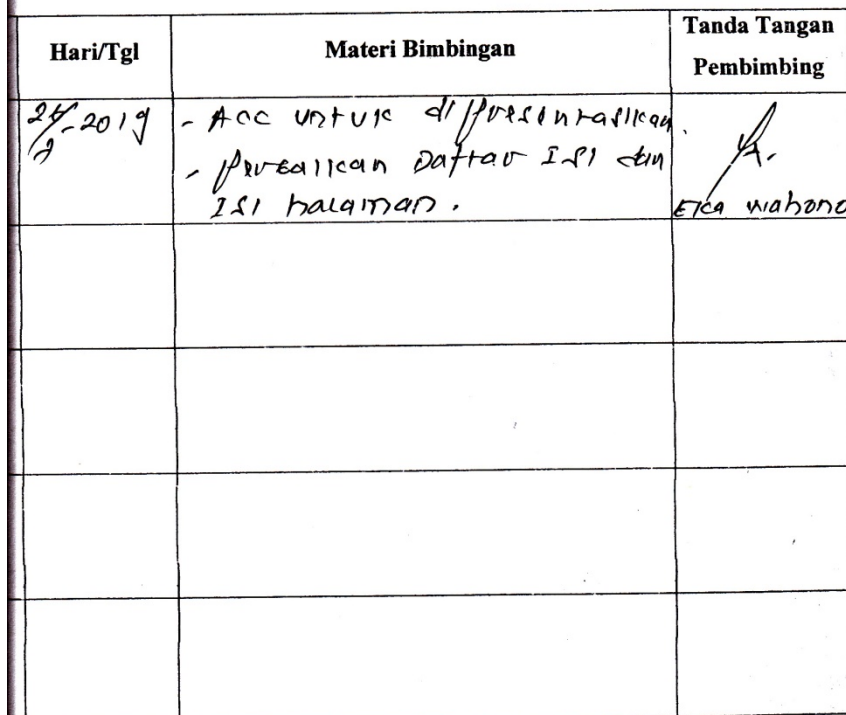 Hari/Tgl
Materi Bimbingan
Tanda Tangan
Pembimbing
-2019
- Acc untuk dipresentasikan.
- Perbaikan Daftar Isi dan
Isi halaman.
Eka Wahono